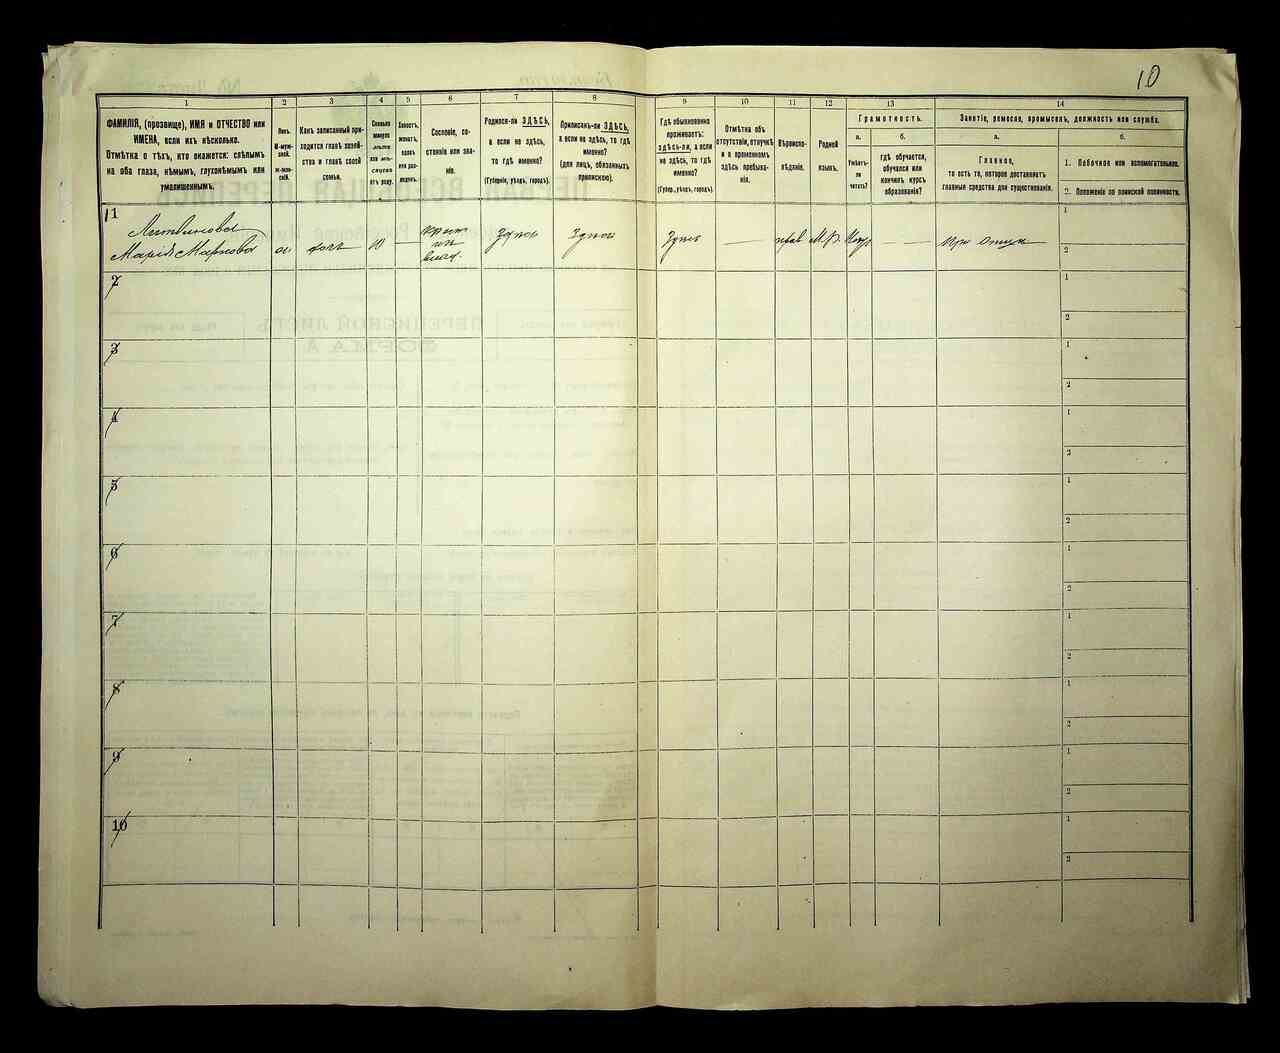 10
1 2 3 4 5 6 7 8 9 10 11 12 13 14
ФАМИЛІЯ, (прозвище), ИМЯ и ОТЧЕСТВО или
ИМЕНА, если ихъ нѣсколько.
Отмѣтка о тѣхъ, кто окажется: слѣпымъ
на оба глаза, нѣмымъ, глухонѣмымъ или
умалишеннымъ.
Полъ.
М-муж-
ской.
Ж-жен-
скій.
Какъ записанный при-
ходится главѣ хозяй-
ства и главѣ своей
семьи.
Сколько
минуло
лѣтъ
или мѣ-
сяцевъ
отъ роду.
Холостъ,
женатъ,
вдовъ
или раз-
веденъ.
Сословіе, со-
стояніе или зва-
ніе.
Родился-ли ЗДѢСЬ,
а если не здѣсь,
то гдѣ именно?
(Губернія, уѣздъ, городъ).
Приписанъ-ли ЗДѢСЬ,
а если не здѣсь, то гдѣ
именно?
(для лицъ, обязанныхъ
припискою).
Гдѣ обыкновенно
проживаетъ:
ЗДѢСЬ-ли, а если
не здѣсь, то гдѣ
именно?
(Губерн., уѣздъ, городъ).
Отмѣтка объ
отсутствіи, отлучкѣ
и о временномъ
здѣсь пребыва-
ніи.
Вѣроиспо-
вѣданіе.
Родной
языкъ.
Грамотность.
а.
Умѣетъ-
ли
читать?
б.
гдѣ обучается,
обучался или
кончилъ курсъ
образованія?
Занятіе, ремесло, промыселъ, должность или служба.
а.
Главное,
то есть то, которое доставляетъ
главныя средства для существованія.
б.
1. Побочное или вспомогательное.
2. Положеніе по воинской повинности.
1
Литвинова
Марія Маркова ж дочь 10 — крест здѣсь здѣсь здѣсь — прав М.Р. —
1
2
2
1
2
3
1
2
4
1
2
5
1
2
6
1
2
7
1
2
8
1
2
9
1
2
10
1
2